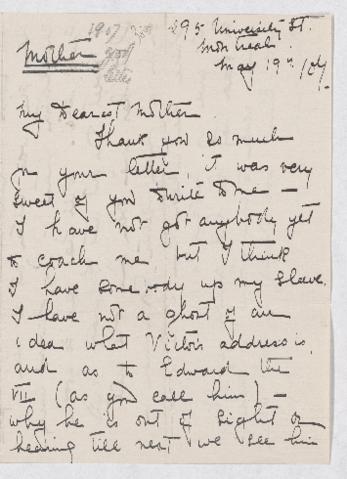 1907
Mother
good
letter
295 University St.
Montreal.
May 19th /07.
My Dearest Mother
Thank you so much
for your letter, it was very
sweet of you to write to me —
I have not got anybody yet
to coach me but I think
I have somebody up my sleave.
I have not a ghost of an
idea what Victor's address is,
and as to Edward the
VII (as you call him) —
why he is out of sight or
hearing till next we see him